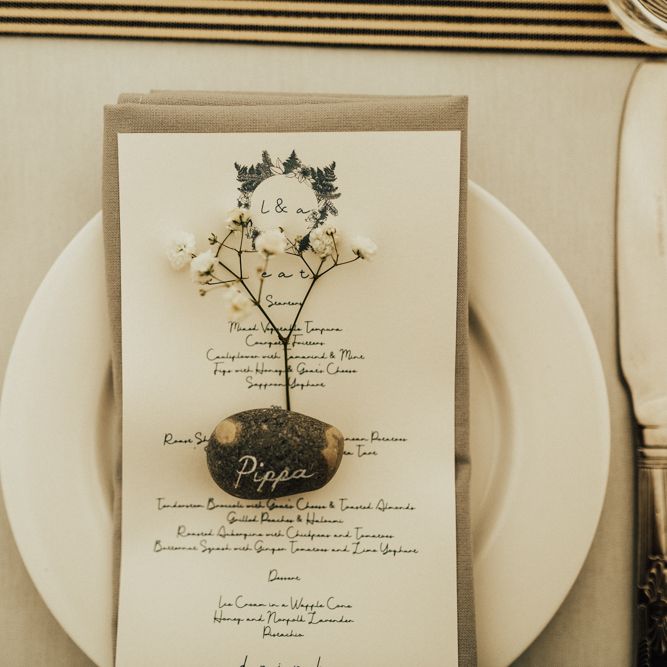 L & a
eat
Starters
Mixed Vegetable Tempura
Courgette Fritters
Cauliflower with Tamarind & Mint
Figs with Honey & Goat's Cheese
Saffron Yoghurt
Roast
Potatoes
Tart
Pippa
Tenderstem Broccoli with Goat's Cheese & Toasted Almonds
Grilled Peaches & Haloumi
Roasted Aubergine with Chickpeas and Tomatoes
Butternut Squash with Ginger Tomatoes and Lime Yoghurt
Dessert
Ice Cream in a Waffle Cone
Honey and Norfolk Lavender
Pistachio